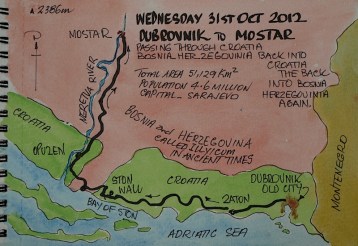 ▲ 2386m
WEDNESDAY 31ST OCT 2012
DUBROVNIK TO MOSTAR
PASSING THROUGH CROATIA
BOSNIA HERZEGOVINA BACK INTO
CROATIA
THE BACK
INTO BOSNIA
HERZEGOVINIA
AGAIN.
TOTAL AREA 51,129 Km²
POPULATION 4.6 MILLION
CAPITAL - SARAJEVO
P
MOSTAR
NERETVA RIVER
BOSNIA and HERZEGOVINA
CALLED ILLYICUM
IN ANCIENT TIMES
CROATIA
OPUZEN
STON
WALL
CROATIA
DUBROVNIK
OLD CITY
ZATON
BAY OF STON
ADRIATIC SEA
MONTENEGRO